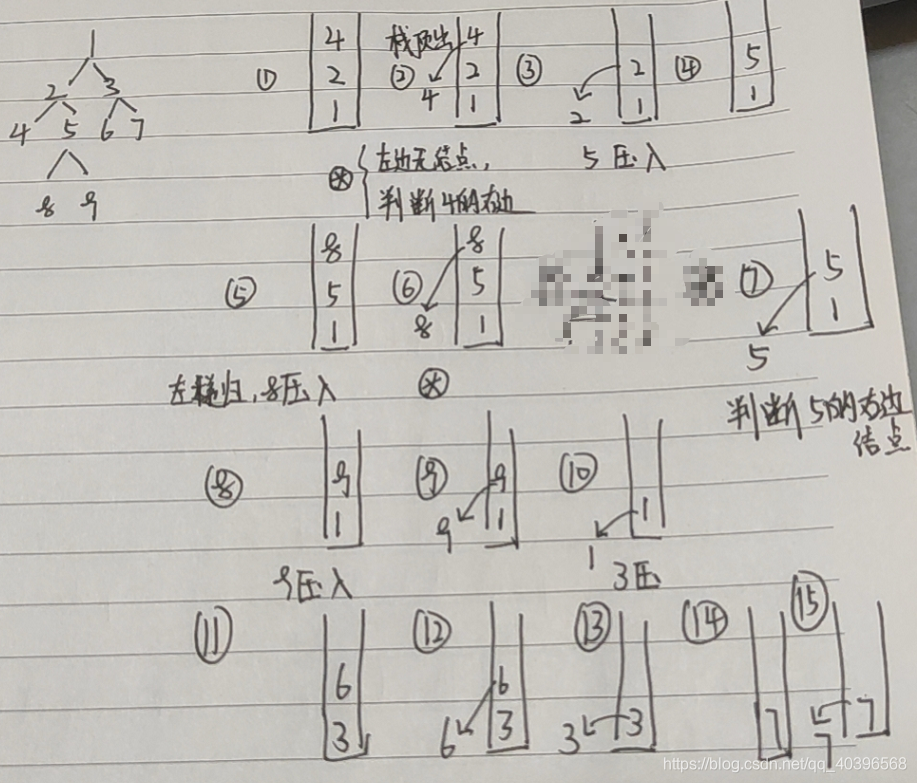 1
2 3
4 5 6 7
8 9
① 4 2 1
② 栈顶出 4 2 1 4
③ 2 1 2
④ 5 1
⊛ 左边无结点,
判断4的右边
5压入
⑤ 8 5 1
⑥ 8 5 1 8
⑦ 5 1 5
左递归,8压入
⊛
判断5的右边
结点
⑧ 9 1
⑨ 9 1 9
⑩ 1 1
9压入
3压
⑪ 6 3
⑫ 6 3 6
⑬ 3 3
⑭ 7
⑮ 7 7
https://blog.csdn.net/qq_40396568